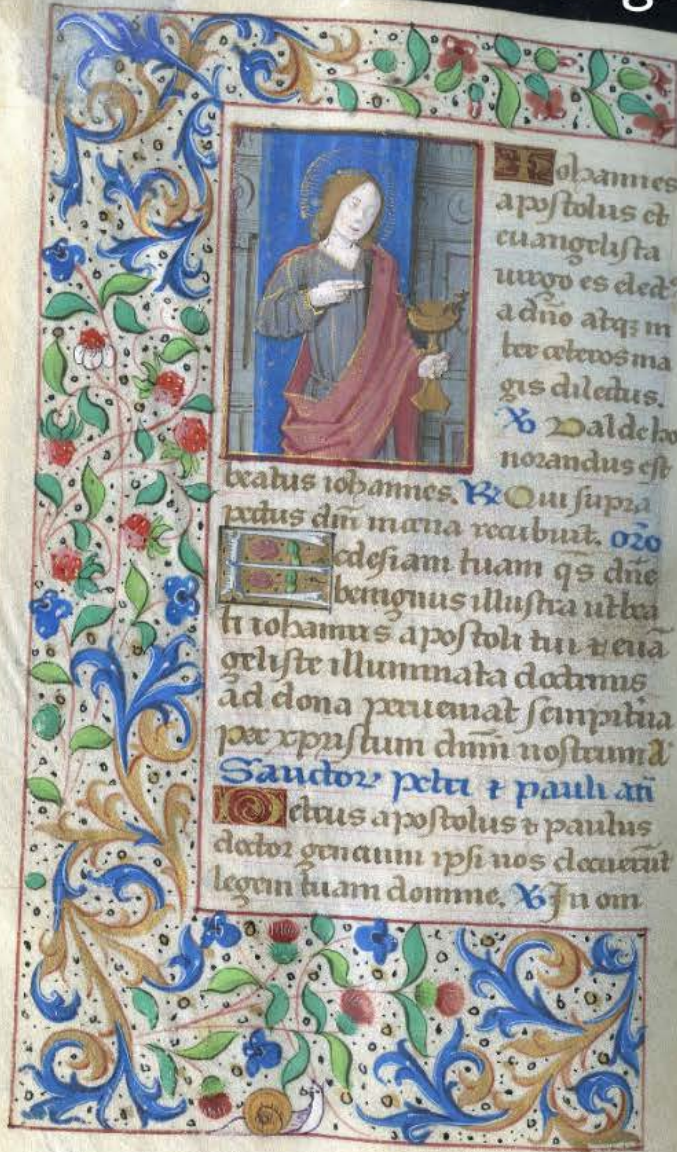 Iohannes
apostolus et
euangelista
uirgo es elect⁹
a dn̄o atqꝫ in
ter ceteros ma
gis dilectus.
℣ Valde ho
norandus est
beatus iohannes. ℟ Qui supra
pectus dn̄i in cena recubuit. or̄o
Ecclesiam tuam q̄s dn̄e
benignus illustra ut bea
ti iohannis apostoli tui ⁊ euā
geliste illuminata doctrinis
ad dona perueniat sempit̄na
per xp̄ristum dn̄m nostrum A
Sanctoꝝ petri ⁊ pauli an̄
Petrus apostolus ⁊ paulus
doctor gencium ipsi nos docuerūt
legem tuam domine. ℣ In om